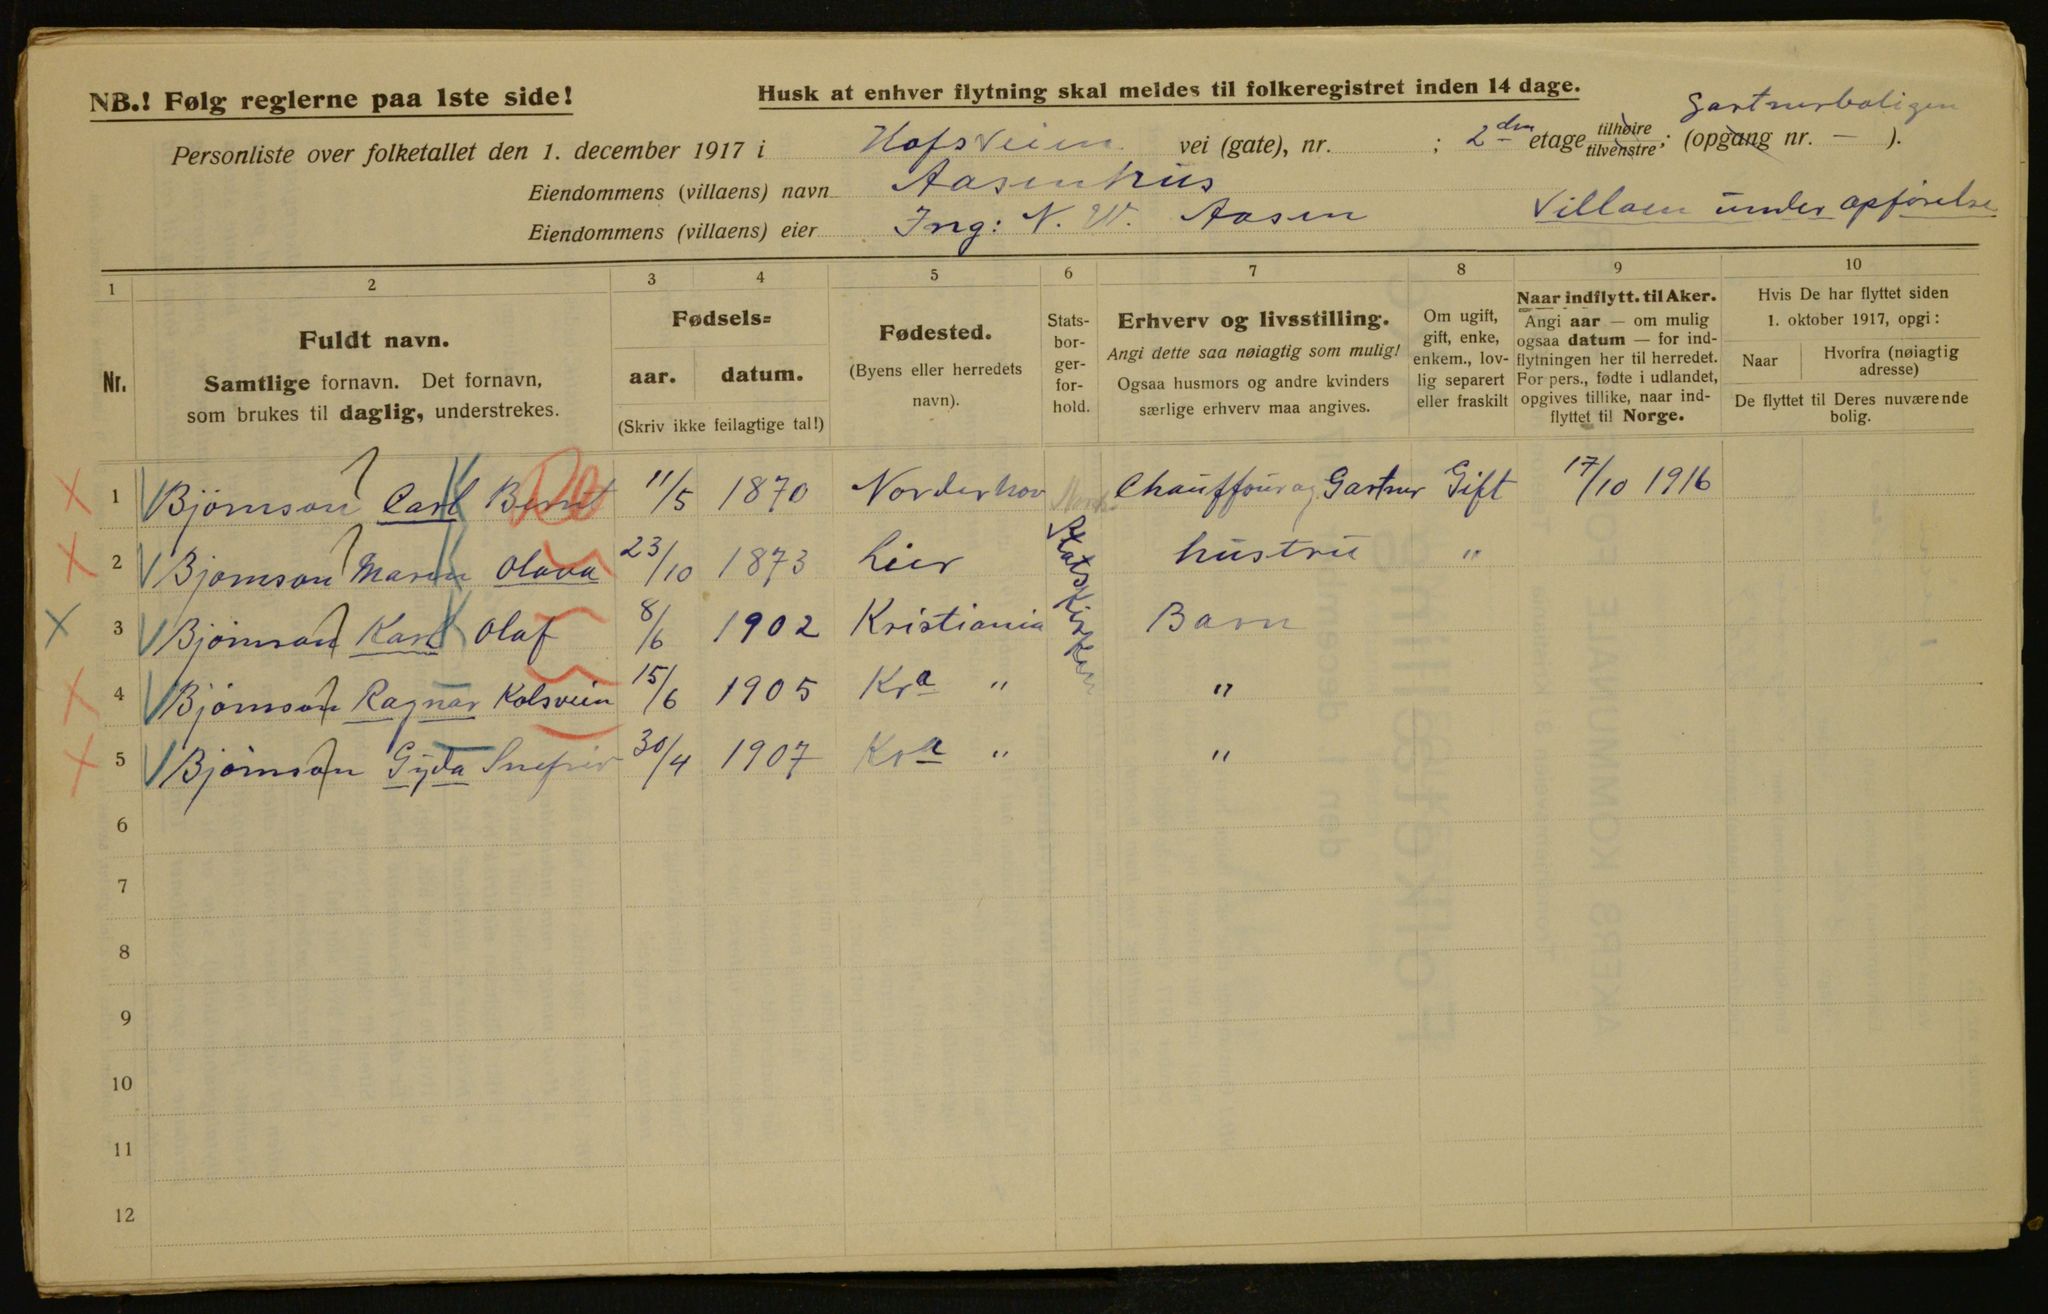 NB.! Følg reglerne paa 1ste side!
Husk at enhver flytning skal meldes til folkeregistret inden 14 dage.
Gartnerboligen
Personliste over folketallet den 1. december 1917 i Hofsveien vei (gate), nr. ; 2den etage tilhøire tilvenstre; (opgang nr. — ).
Eiendommens (villaens) navn Aasenhus
Eiendommens (villaens) eier Ing: N. W. Aasen Villaen under opførelse
1 2 3 4 5 6 7 8 9 10
Nr.
Fuldt navn.
Samtlige fornavn. Det fornavn,
som brukes til daglig, understrekes.
Fødsels=
aar. datum.
(Skriv ikke feilagtige tal!)
Fødested.
(Byens eller herredets
navn).
Stats-
bor-
ger-
for-
hold.
Erhverv og livsstilling.
Angi dette saa nøiagtig som mulig!
Ogsaa husmors og andre kvinders
særlige erhverv maa angives.
Om ugift,
gift, enke,
enkem., lov-
lig separert
eller fraskilt
Naar indflytt. til Aker.
Angi aar — om mulig
ogsaa datum — for ind-
flytningen her til herredet.
For pers., fødte i udlandet,
opgives tillike, naar ind-
flyttet til Norge.
Hvis De har flyttet siden
1. oktober 1917, opgi:
Naar Hvorfra (nøiagtig
adresse)
De flyttet til Deres nuværende
bolig.
1 Bjørnson Carl Bernt 11/5 1870 Norderhov Norsk Chauffour og Gartner Gift 17/10 1916
2 Bjørnson Maren Olava 23/10 1873 Lier hustru "
3 Bjørnson Karl Olaf 8/6 1902 Kristiania Barn
Statskirken
4 Bjørnson Ragnar Kolsvein 15/6 1905 Kra " "
5 Bjørnson Gyda Snefrid 30/4 1907 Kra " "
6
7
8
9
10
11
12